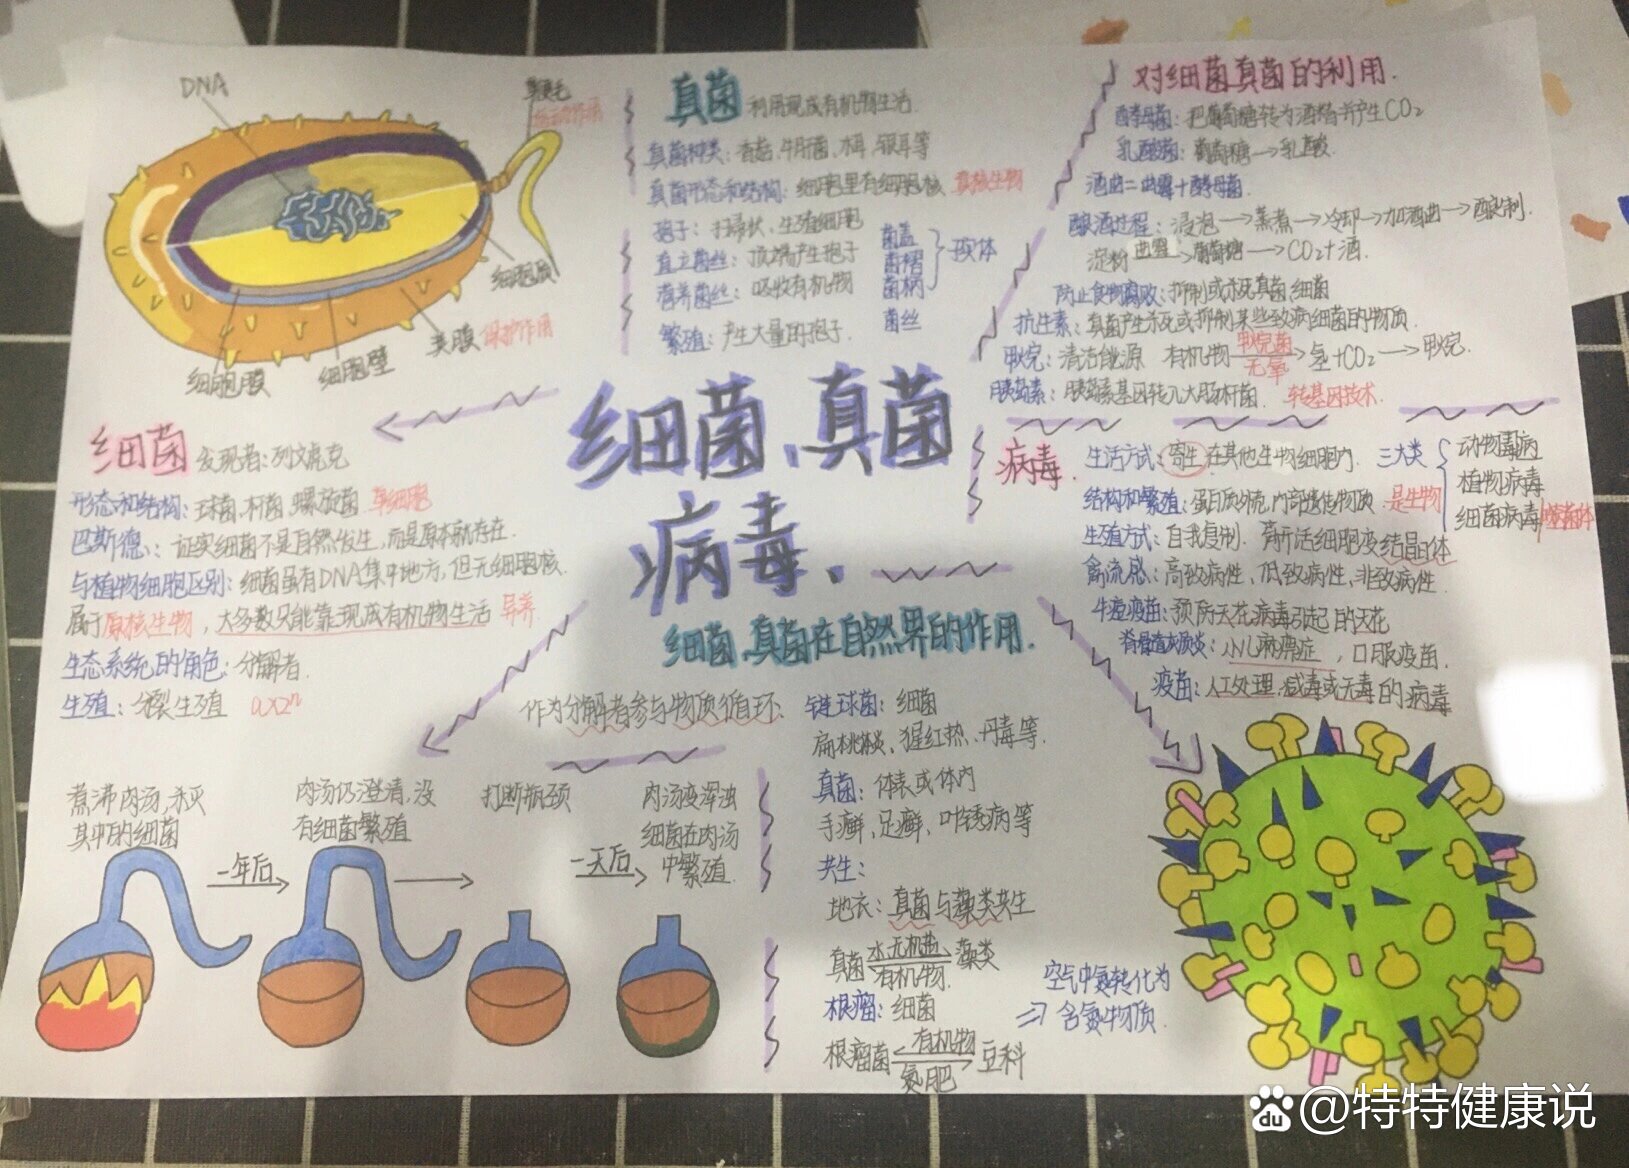 DNA
鞭毛
运动作用
细胞质
荚膜 保护作用
细胞壁
细胞膜
真菌 利用现成有机物生活.
真菌种类:香菇、牛肝菌、木耳、银耳等
真菌形态和结构:细胞里有细胞核 真核生物
孢子:扫帚状、生殖细胞
直立菌丝:顶端产生孢子
营养菌丝:吸收有机物
繁殖:产生大量的孢子.
菌盖
菌褶
菌柄
菌丝
子实体
对细菌真菌的利用.
酵母菌:把葡萄糖转为酒精并产生CO2
乳酸菌:葡萄糖→乳酸.
酒曲=曲霉+酵母菌.
酿酒过程:浸泡→蒸煮→冷却→加酒曲→酿制.
淀粉 曲霉→葡萄糖→CO2+酒.
防止食物腐败:抑制或杀死真菌细菌
抗生素:真菌产生杀死或抑制某些致病细菌的物质.
甲烷:清洁能源 有机物 甲烷菌 无氧→氢+CO2→甲烷.
胰岛素:胰岛素基因转入大肠杆菌. 转基因技术.
细菌、真菌
病毒、
细菌 发现者:列文虎克
形态和结构:球菌、杆菌、螺旋菌 单细胞
巴斯德:证实细菌不是自然发生,而是原本就存在.
与植物细胞区别:细菌虽有DNA集中地方,但无细胞核.
属于原核生物,大多数只能靠现成有机物生活 异养
生态系统的角色:分解者.
生殖:分裂生殖 a×2ⁿ
病毒. 生活方式:寄生在其他生物细胞内. 三大类
动物病毒
植物病毒
细菌病毒 噬菌体
结构和繁殖:蛋白质外壳,内部遗传物质. 是生物
生殖方式:自我复制. 离开活细胞变结晶体
禽流感:高致病性、低致病性、非致病性.
牛痘疫苗:预防天花病毒引起的天花
脊骨髓灰质炎:小儿麻痹症,口服疫苗.
疫苗:人工处理,减毒或无毒的病毒
细菌、真菌在自然界的作用.
作为分解者参与物质循环.
链球菌:细菌
扁桃体炎、猩红热、丹毒等.
真菌:体表或体内
手癣、足癣、叶锈病等
共生:
地衣:真菌与藻类共生
真菌 水无机盐 有机物. 藻类
根瘤:细菌
根瘤菌 有机物 氮肥 豆科
空气中氮转化为
⇒ 含氮物质.
煮沸肉汤,杀灭
其中的细菌
一年后
肉汤仍澄清,没
有细菌繁殖
打断瓶颈
一天后
肉汤变浑浊
细菌在肉汤
中繁殖.
Bai du @特特健康说